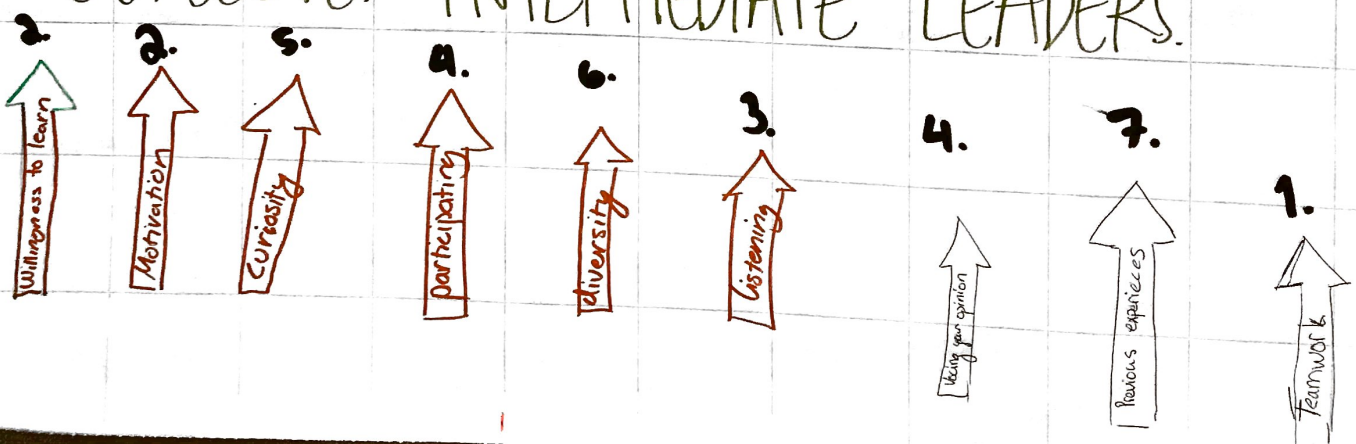 INTERMEDIATE LEADERS.
2. 2. 5. 4. 6. 3. 4. 7. 1.
Willingness to learn
Motivation
Curiosity
participating
diversity
Listening
Vocing your opinion
Previous experieces
Teamwork